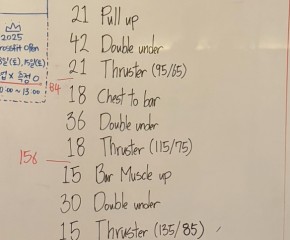 2025
Crossfit Open
21 Pull up
42 Double under
21 Thruster (95/65)
84
18 Chest to bar
36 Double under
18 Thruster (115/75)
156
15 Bar Muscle up
30 Double under
15 Thruster (135/85)